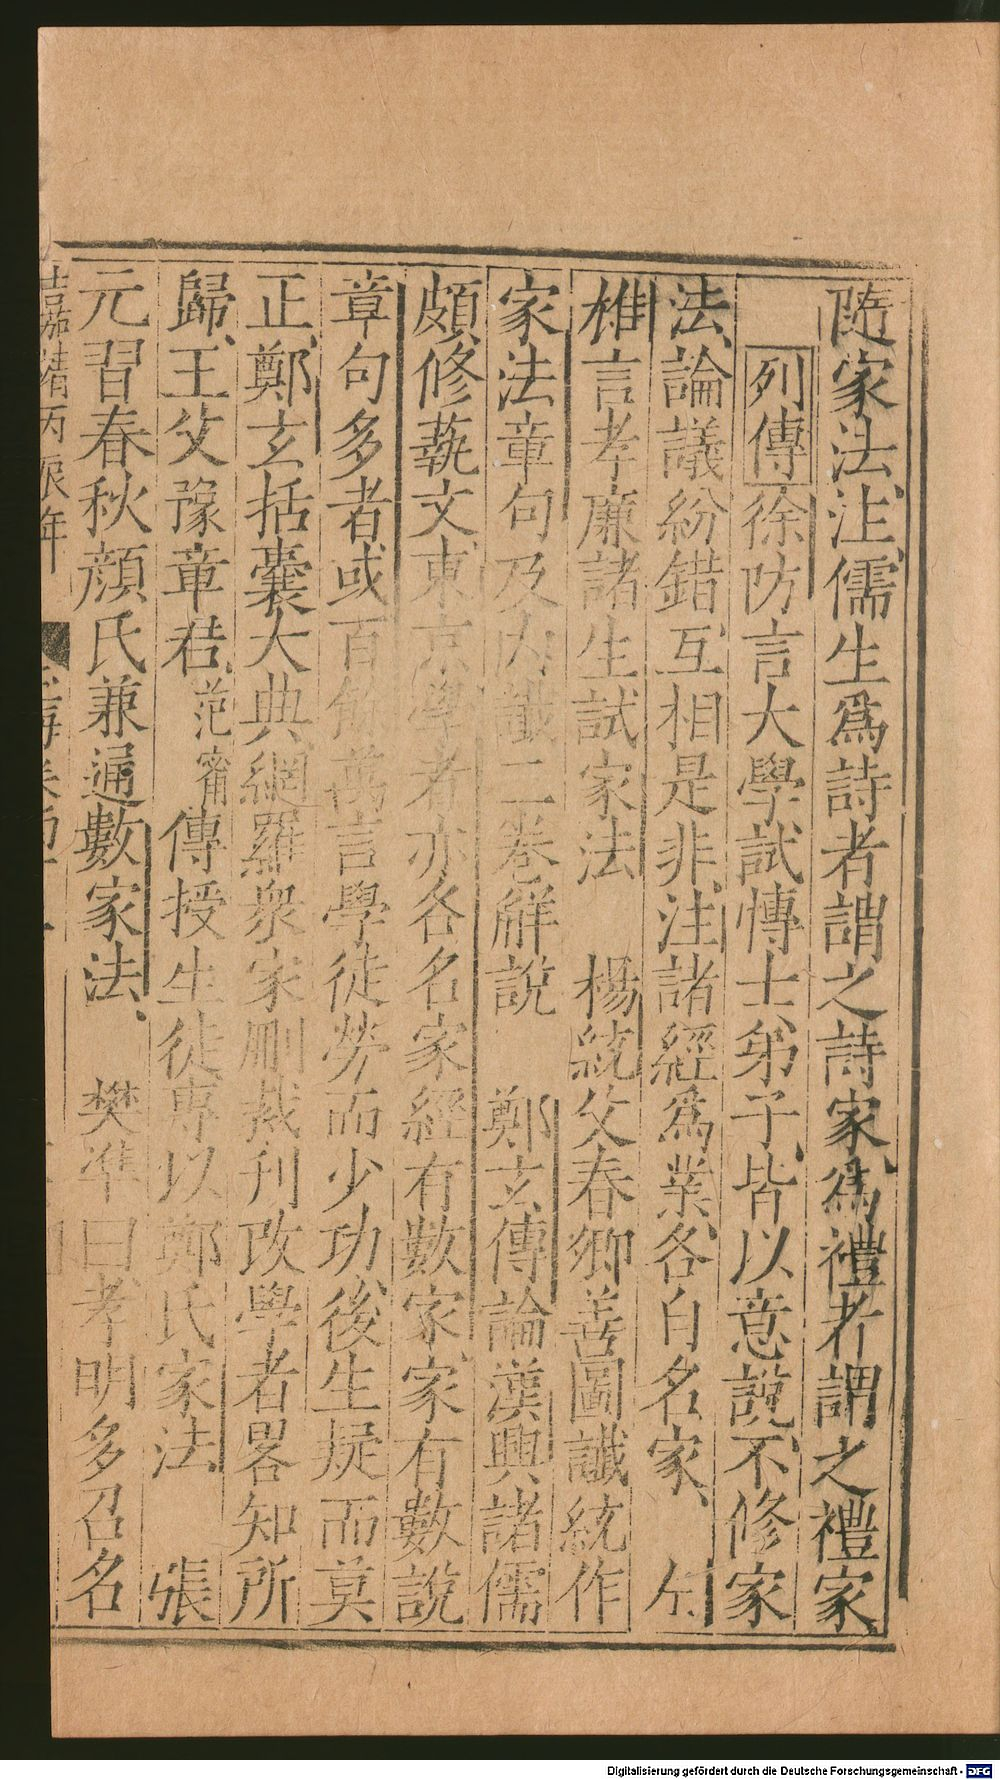 隨家法注儒生爲詩者謂之詩家爲禮者謂之禮家
列傳徐防言大學試博士弟子皆以意說不修家
法論議紛錯互相是非注諸經爲業各自名家　左
雄言孝廉諸生試家法　楊統父春卿善圖讖統作
家法章句及內讖二卷解說　鄭玄傳論漢興諸儒
頗修蓺文東京學者亦各名家經有數家家有數說
章句多者或百餘萬言學徒勞而少功後生疑而莫
正鄭玄括囊大典網羅衆家刪裁刊改學者畧知所
歸王父豫章君范甯傳授生徒專以鄭氏家法　張
元習春秋顔氏兼通數家法　樊準曰孝明多召名
嘉靖丙辰年
Digitalisierung gefördert durch die Deutsche Forschungsgemeinschaft - DFG